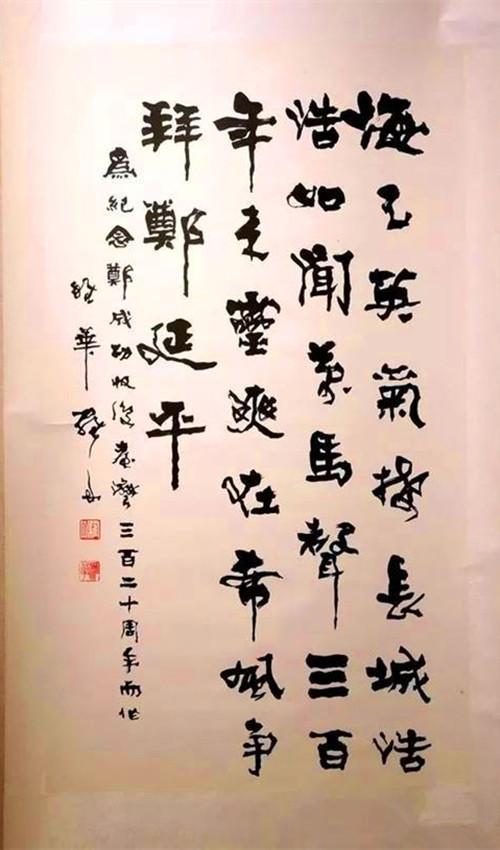 海英氣接長城浩
浩如聞萬馬聲三百
年来靈爽在希風争
拜鄭延平
為紀念鄭成功收復臺灣三百二十周年而作
華